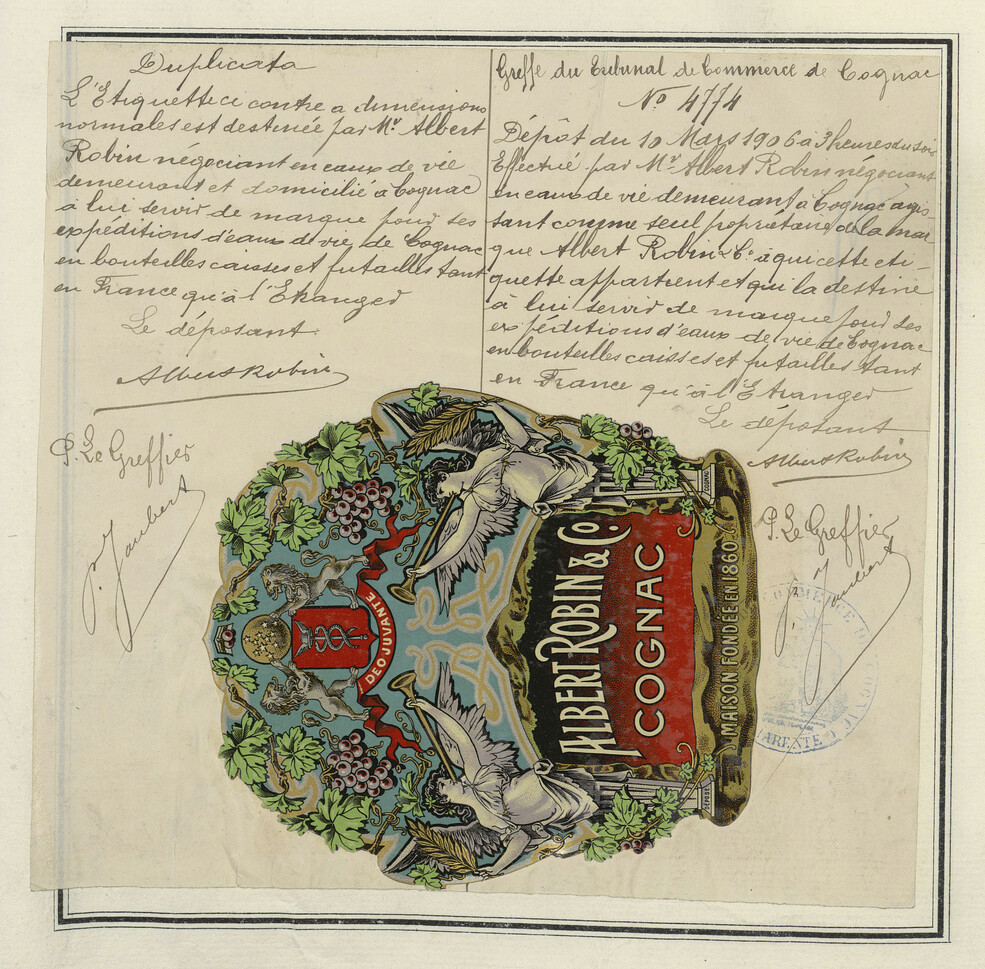 Duplicata
L'Etiquette ci contre a dimensions
normales est destinée par Mr. Albert
Robin négociant en eaux de vie
demeurant et domicilié à Cognac
à lui servir de marque pour ses
expéditions d'eaux de vie de Cognac
en bouteilles caisses et futailles tant
en France qu'à l'Etranger
Le déposant
Albert Robin
P. Le Greffier
P. Jaubert
Greffe du Tribunal de Commerce de Cognac
No 4774
Dépôt du 10 Mars 1906 à 3 heures du soir
Effectué par Mr. Albert Robin négociant
en eaux de vie demeurant à Cognac agis
sant comme seul propriétaire de la mar
que Albert Robin & Co. à qui cette eti-
quette appartient et qui la destine
à lui servir de marque pour ses
expéditions d'eaux de vie de Cognac
en bouteilles caisses et futailles tant
en France qu'à l'Etranger
Le déposant
Albert Robin
P. Le Greffier
COMMERCE
ARENTE
DEO JUVANTE
ALBERT ROBIN & Co.
COGNAC
MAISON FONDÉE EN 1860
DÉPOSÉ
COGNAC